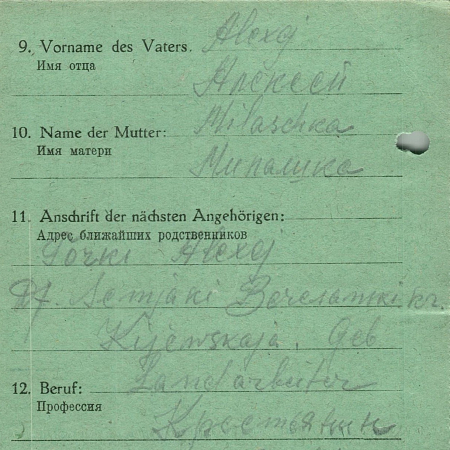 Alexej
9. Vorname des Vaters.
Имя отца
Алексей
10. Name der Mutter: Milaschka
Имя матери
Милашка
11. Anschrift der nächsten Angehörigen:
Адрес ближайших родственников
Alexej
Semjaki
Kijewskaja. Geb
12. Beruf: Landarbeiter
Профессия
Крестянин